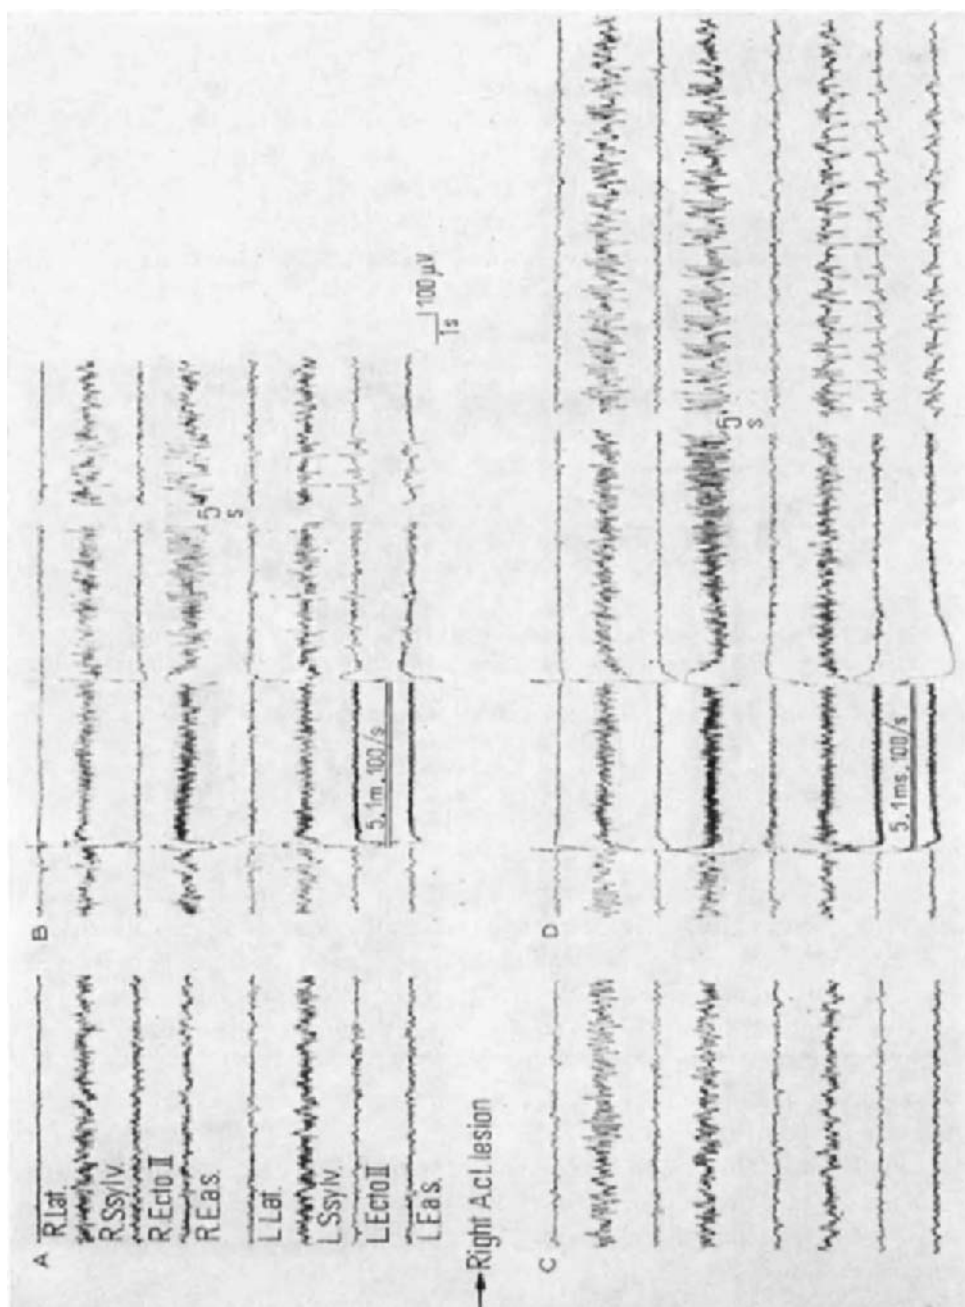 A
R.Lat.
R.Ssylv.
R.Ecto II
R.Ea.s.
L.Lat.
L.Ssylv.
L.Ecto II
L.Ea.s.
B
5 s
5, 1m, 100/s
100 µV
1s
→Right A.c.l. lesion
C
D
5 s
5, 1ms, 100/s